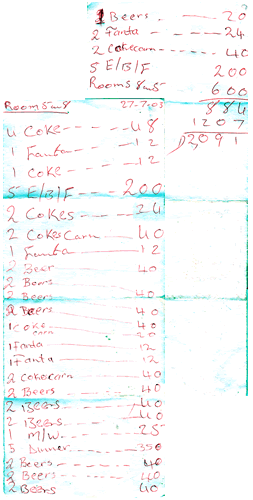 1 Beers - - - 20
2 Fanta - - - 24
2 Cokecarn - - 40
5 E/B/F 200
Rooms 8 an 5 600
884
1207
2091
Rooms 5 an 8 27-7-03
4 Coke - - - 48
1 Fanta - - - 12
1 Coke - - - 12
5 E/B/F - - - 200
2 Cokes - - - 24
2 Cokes Carn - - 40
1 Fanta - - - 12
2 Beer 40
2 Beers
2 Beers 40
2 Beers 40
1 Coke 40
carn 20
1 Fanta 12
1 Fanta 12
2 Cokecarn - - 40
2 Beers - - - 40
2 Beers - - - 40
2 Beers - - - 40
1 M/W - - - 25
5 Dinner - - - 350
2 Beers - - - 40
2 Beers - - - 40
2 Beers 40